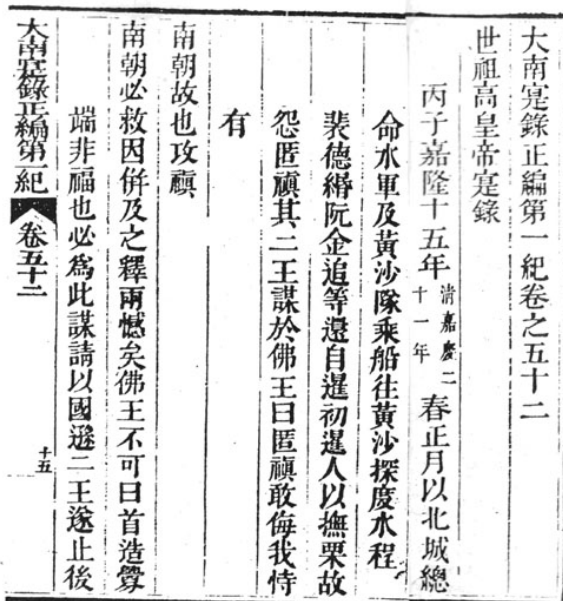 大南寔錄正編第一紀卷之五十二
世祖高皇帝寔錄
丙子嘉隆十五年清嘉慶二十一年春正月以北城總
命水軍及黃沙隊乘船往黃沙探度水程
裴德緡阮金追等還自暹初暹人以撫栗故
怨匿禛其二王謀於佛王曰匿禛敢侮我恃
有
南朝故也攻禛
南朝必救因併及之釋兩憾矣佛王不可曰首造釁
端非福也必爲此謀請以國遜二王遂止後
大南寔錄正編第一紀 卷五十二 十五